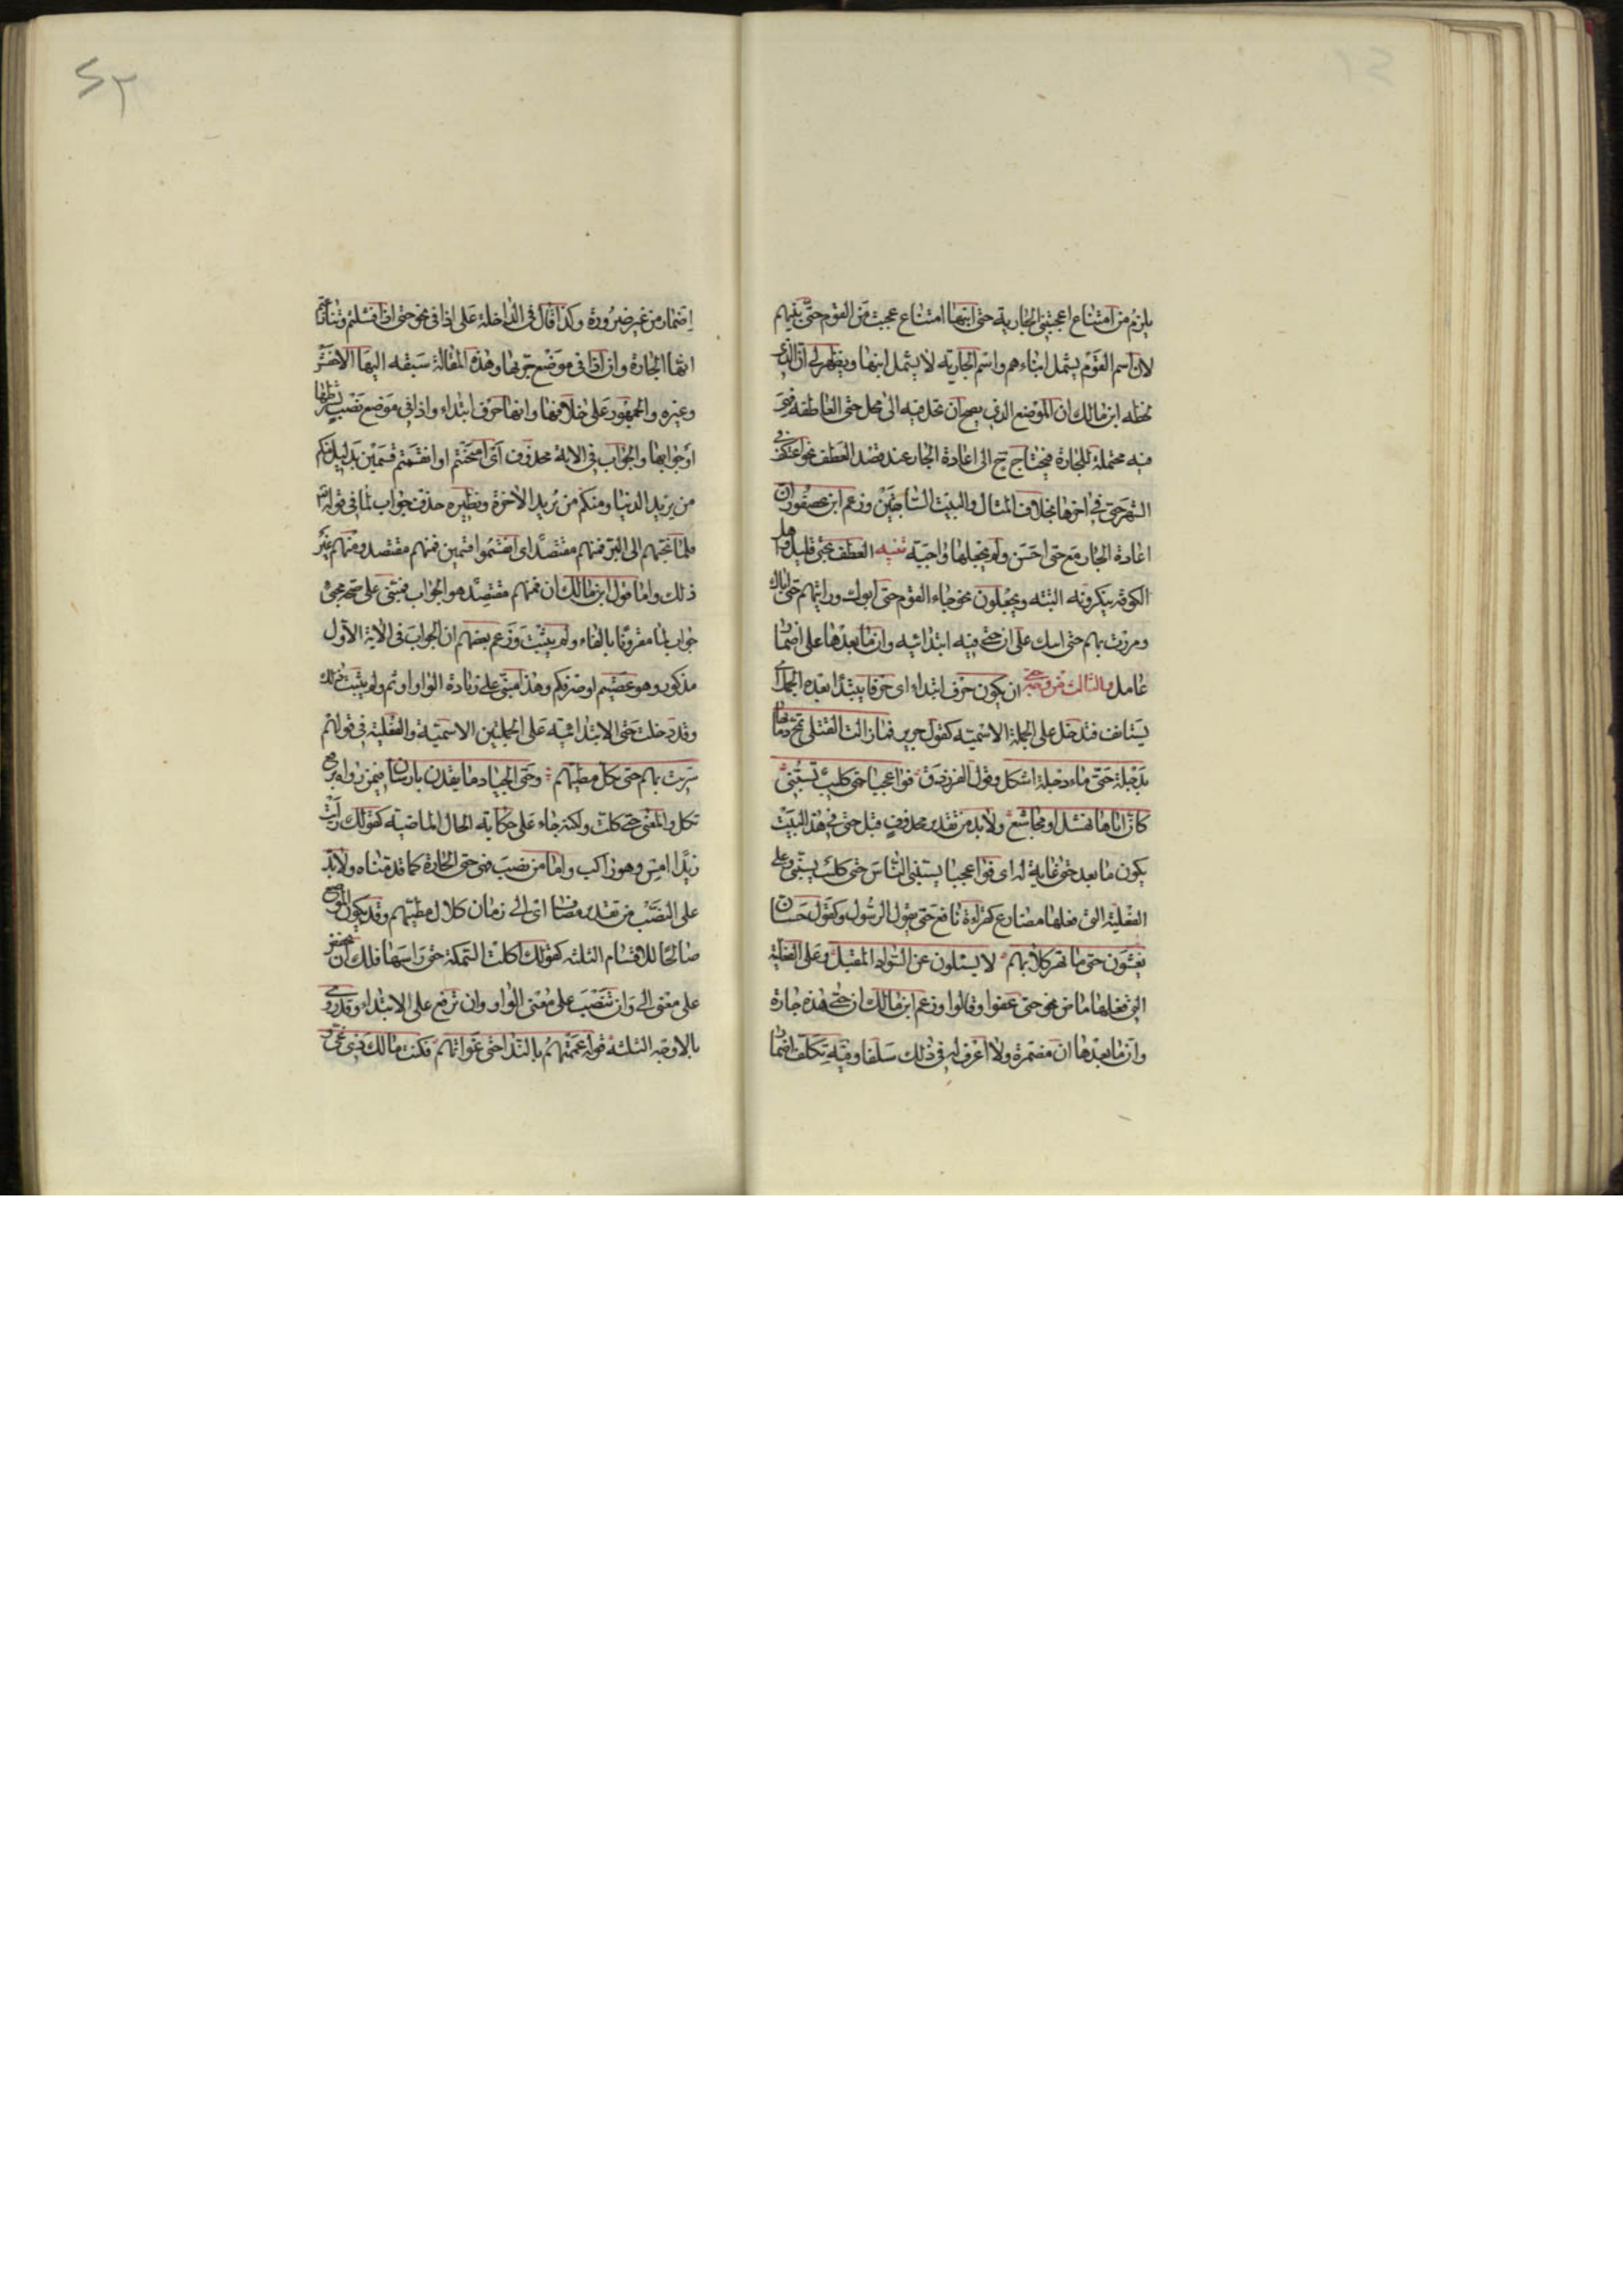 يلزم من امتناع اعجبتني الجارية حتى ابنها امتناع عجبت من القوم حتى بنيهم
لان اسم القوم يشمل ابناءهم واسم الجارية لا يشمل ابنها ويظهر لي ان الذي
لحظه ابن مالك ان الموضع الذي يصح ان تحل فيه الى محل حتى العاطفة فهي
فيه محتملة للجارة فيحتاج ح الى اعادة الجار عند قصد العطف نحو اعتكفت في
الشهر حتى في اخرها بخلاف المثال والبيت السابقين وزعم ابن عصفور ان
اعادة الجار مع حتى احسن ولم يجعلها واجبة تنبيه العطف بحتى قليل واهل
الكوفة ينكرونه البتة ويحملون نحو جاء القوم حتى ابوك ورايتهم حتى اباك
ومررت بهم حتى ابيك على ان حتى فيه ابتدائيه وان ما بعدها على اضمار
عامل والثالث من وجوه حتى ان يكون حرف ابتداء اى حرفا يبتدا بعده الجمل اى
يستانف فتدخل على الجملة الاسمية كقول جرير فما زالت القتلى تمج دماءها
بدجلة حتى ماء دجلة اشكل وقول الفرزدق فوا عجبا حتى كليب تسبني
كان اباها نهشل او مجاشع ولا بد من تقدير محذوف قبل حتى في هذا البيت
يكون ما بعد حتى غاية له اى فوا عجبا يسبني الناس حتى كليب يسبني وعلى
الفعلية التي فعلها مضارع كقراءة نافع حتى يقول الرسول وكقول حسان
يغشون حتى ما تهر كلابهم لا يسئلون عن السواد المقبل وعلى الفعلية
التي فعلها ماض نحو حتى عفوا وقالوا وزعم ابن مالك ان حتى هذه جارة
وان ما بعدها ان مضمرة ولا اعرف له في ذلك سلفا وفيه تكلف اضمار
۲۳
اضمار من غير ضرورة وكذا قال في الداخلة على اذا في نحو حتى اذا فشلتم وتنازعتم
انها الجارة وان اذا في موضع جر بها وهذه المقالة سبقه اليها الاخفش
وغيره والجمهور على خلافها وانها حرف ابتداء واذا في موضع نصب بشرطها
او جوابها والجواب في الاية محذوف اى امتحنتم او انقسمتم قسمين بدليل منكم
من يريد الدنيا ومنكم من يريد الاخرة ونظيره حذف جواب لما في قوله تع
فلما نجيهم الى البر فمنهم مقتصد اى انقسموا قسمين فمنهم مقتصد ومنهم غير
ذلك واما قول ابن مالك ان فمنهم مقتصد هو الجواب فمبني على صحة مجيء
جواب لما مقرونا بالفاء ولم يثبت وزعم بعضهم ان الجواب في الاية الاول
مذكور وهو عصيتم او صرفكم وهذا مبني على زيادة الواو او ثم ولم يثبت ذلك
وقد دخلت حتى الابتدائية على الجملتين الاسمية والفعلية في قولهم
سريت بهم حتى تكل مطيهم وحتى الجياد ما يقدن بارسان فيمن رواه برفع
تكل والمعنى حتى كلت ولكنه جاء على حكاية الحال الماضية كقولك رايت
زيدا امس وهو راكب واما من نصب فهي حتى الجارة كما قدمناه ولا بد
على النصب من تقدير مضاف اى الى زمان كلال مطيهم وقد يكون الموضع
صالحا للاقسام الثلثه كقولك اكلت السمكة حتى راسها فلك ان تخفض
على معنى الى وان تنصب على معنى الواو وان ترفع على الابتداء وقد روى
بالاوجه الثلثة قوله عممتهم بالندا حتى غواتهم فكنت مالك ذي غي و